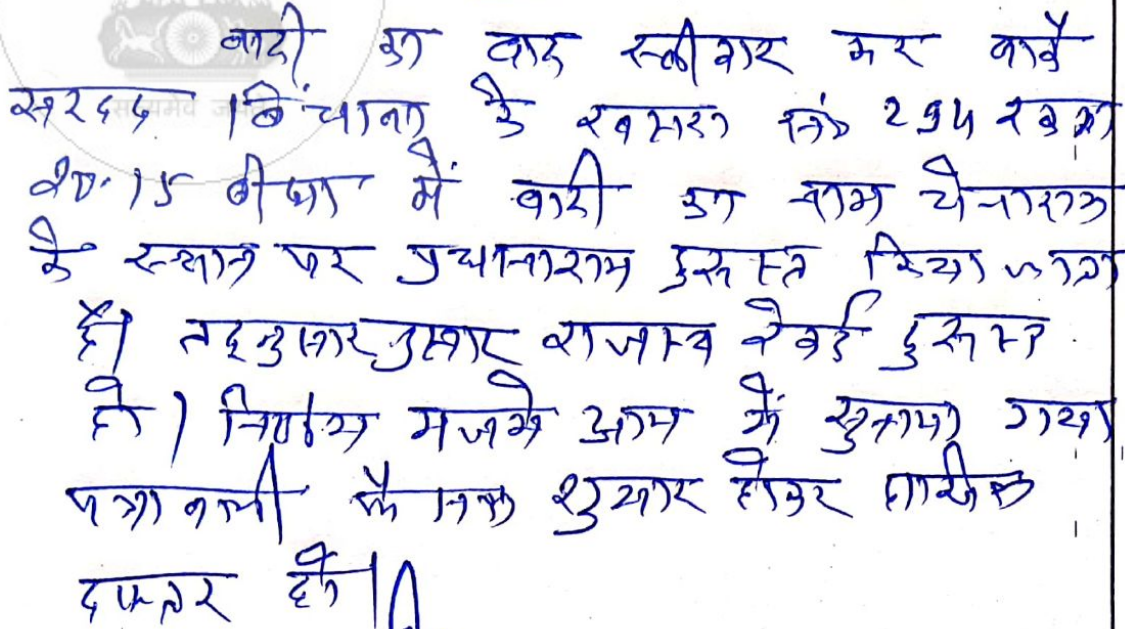 वादी का वाद स्वीकार कर वाके
सरहद चिंचाना के खसरा नं० 294 रकबा
20.15 बीघा में वादी का नाम चेनाराम
के स्थान पर प्रधानाराम दुरुस्त किया जाता
है। तद्नुसार राजस्व रेकर्ड दुरुस्त
हो। निर्णय मजमे आम में सुनाया गया
पत्रावली फैसल शुमार होकर दाखिल
दफ्तर हो।